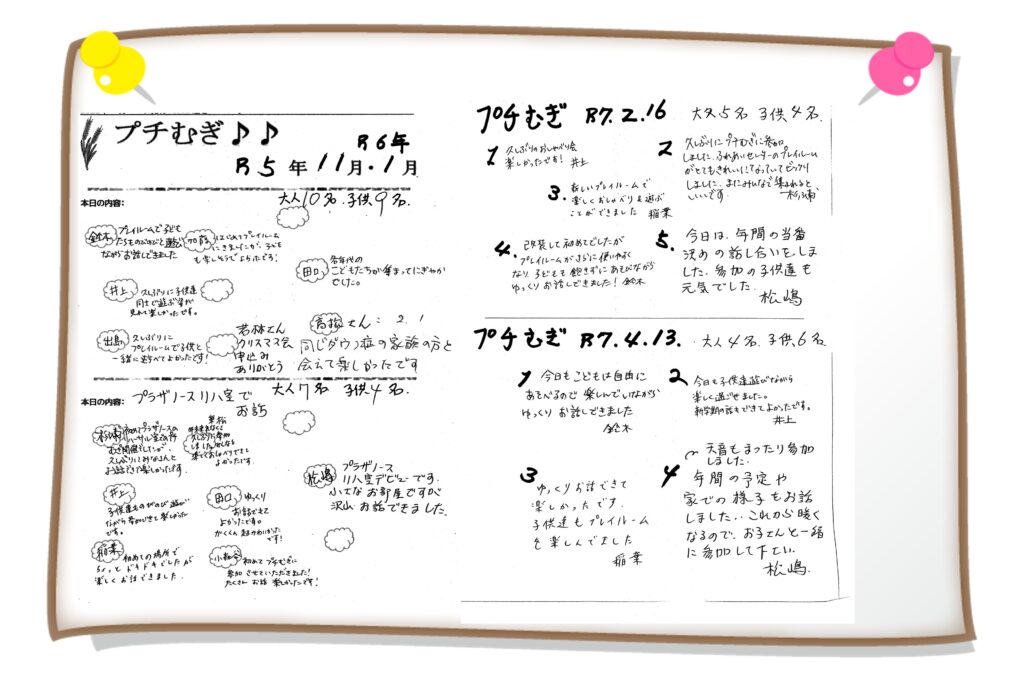 プチむぎ♪♪
R6年
R5年11月・1月
大人10名 子供9名
本日の内容:
鈴木 プレイルームで子ども
ながらお話しできました
はじめてプレイルーム
にきましたが、子ども
も楽しそうでよかったです!
田口 各年代の
こどもたちが集まってにぎやか
でした。
井上 久しぶりに子供達
同士で遊ぶ姿が
見れて楽しかったです。
出島 久しぶりに
プレイルームで子供と
一緒に遊べてよかったです!
若林さん
クリスマス会
申込み
ありがとう
さん:2.1
同じダウン症の家族の方と
会えて楽しかったです
大人7名 子供4名
本日の内容:
プラザノースリハ室で
お話
初めてプラザノースの
むぎ開催でしたが、
久しぶりにみなさんと
お話できて楽しかったです。
よかったです
松嶋 プラザノース
リハ室デビューです。
小さなお部屋ですが
沢山お話できました。
井上
子供達ものびのび遊び
ながら
です。
田口 ゆっくり
お話できて
よかったです。
です!
稲葉 初めての場所で
ちょっとドキドキでしたが
楽しくお話できました。
初めてプチむぎに
参加させていただきました!
たくさんお話楽しかったです!
プチむぎ R7.2.16 大人5名 子供4名
1 久しぶりのおしゃべり会
楽しかったです! 井上
2 久しぶりにプチむぎに参加
しました。ふれあいセンターのプレイルーム
がとてもきれいになっていてビックリ
しました。またみんなで集まれると
いいです。
3. 新しいプレイルームで
楽しくおしゃべり&遊ぶ
ことができました 稲葉
4. 改装して初めてでしたが
プレイルームがさらに使いやすく
なり、子どもも飽きずにあそびながら
ゆっくりお話しできました! 鈴木
5. 今日は、年間の当番
決めの話し合いをしま
した。参加の子供達も
元気でした。
松嶋
プチむぎ R7.4.13. 大人4名、子供6名
1 今日もこどもは自由に
あそべるので楽しんでいながら
ゆっくりお話しできました
鈴木
2 今日も子供達遊びながら
楽しく過ごせました。
新学期の話もできてよかったです。
井上
3 ゆっくりお話できて
楽しかったです。
子供達もプレイルーム
を楽しんでました
稲葉
天音もまったり参加
しました。
4 年間の予定や
家での様子もお話
しました。これから暖く
なるので、お子さんと一緒
に参加して下さい。
松嶋